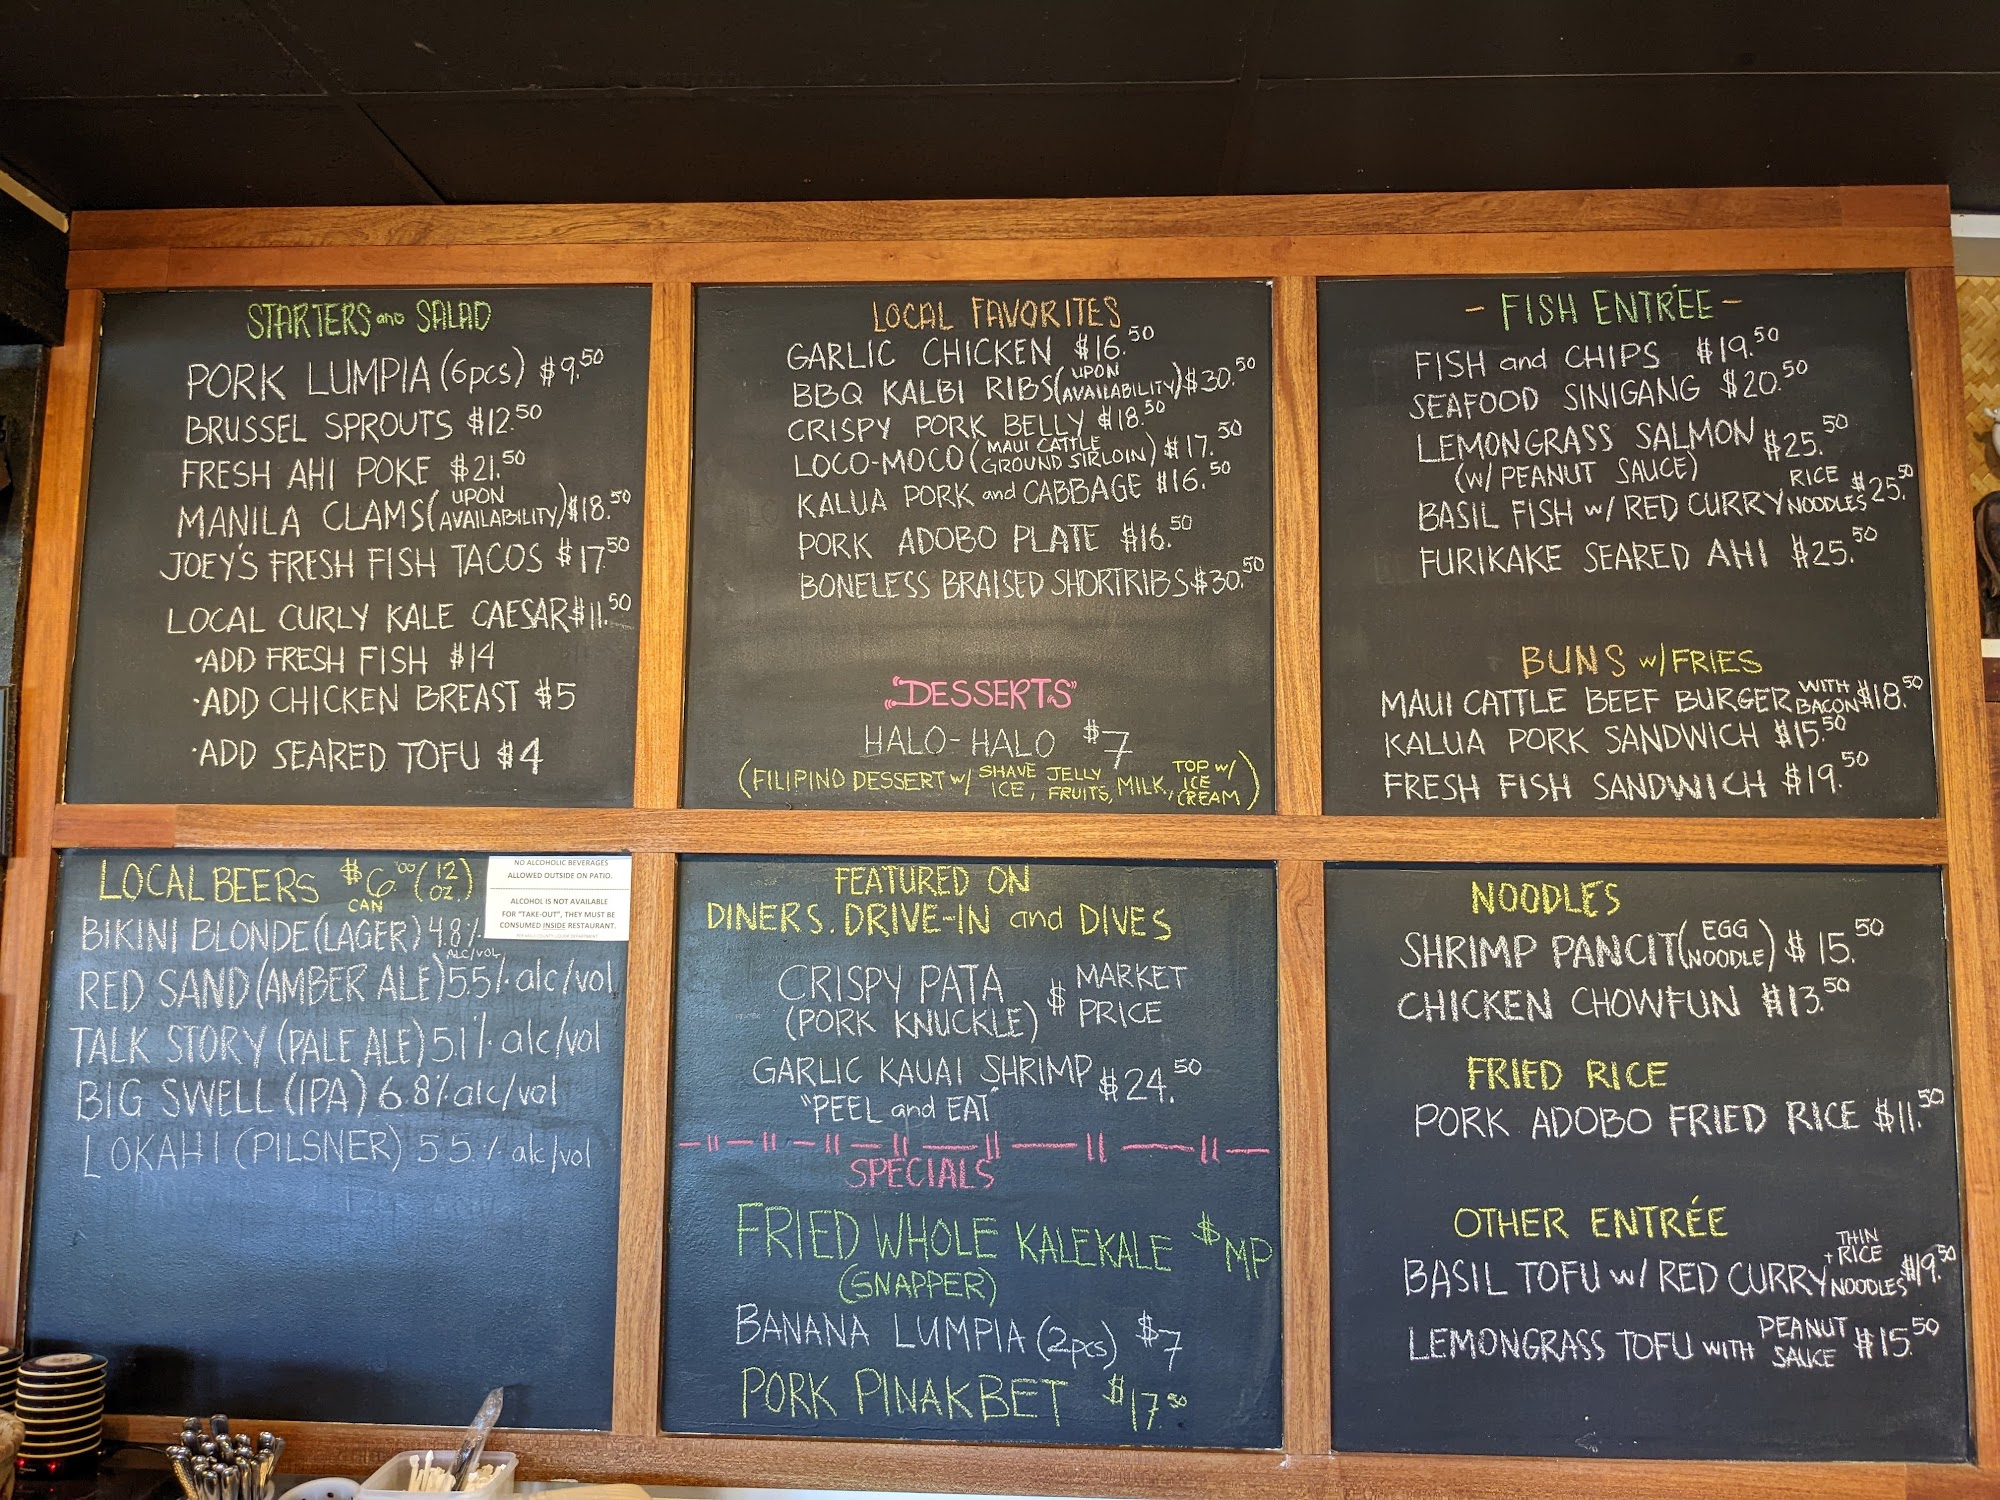 STARTERS and SALAD
PORK LUMPIA (6pcs) $9.50
BRUSSEL SPROUTS $12.50
FRESH AHI POKE $21.50
MANILA CLAMS (UPON AVAILABILITY) $18.50
JOEY'S FRESH FISH TACOS $17.50
LOCAL CURLY KALE CAESAR $11.50
·ADD FRESH FISH $14
·ADD CHICKEN BREAST $5
·ADD SEARED TOFU $4
LOCAL FAVORITES
GARLIC CHICKEN $16.50
BBQ KALBI RIBS (UPON AVAILABILITY) $30.50
CRISPY PORK BELLY $18.50
LOCO-MOCO (MAUI CATTLE GROUND SIRLOIN) $17.50
KALUA PORK and CABBAGE $16.50
PORK ADOBO PLATE $16.50
BONELESS BRAISED SHORTRIBS $30.50
"DESSERTS"
HALO-HALO $7
(FILIPINO DESSERT w/ SHAVE ICE, JELLY FRUITS, MILK, TOP w/ ICE CREAM)
- FISH ENTRÉE -
FISH and CHIPS $19.50
SEAFOOD SINIGANG $20.50
LEMONGRASS SALMON $25.50
(w/ PEANUT SAUCE)
BASIL FISH w/ RED CURRY RICE NOODLES $25.50
FURIKAKE SEARED AHI $25.50
BUNS w/ FRIES
MAUI CATTLE BEEF BURGER WITH BACON $18.50
KALUA PORK SANDWICH $15.50
FRESH FISH SANDWICH $19.50
LOCAL BEERS $6.00 CAN (12 OZ.)
BIKINI BLONDE (LAGER) 4.8% ALC/VOL
RED SAND (AMBER ALE) 5.5% alc/vol
TALK STORY (PALE ALE) 5.1% alc/vol
BIG SWELL (IPA) 6.8% alc/vol
LOKAHI (PILSNER) 5.5% alc/vol
NO ALCOHOLIC BEVERAGES
ALLOWED OUTSIDE ON PATIO.
ALCOHOL IS NOT AVAILABLE
FOR "TAKE-OUT", THEY MUST BE
CONSUMED INSIDE RESTAURANT.
FEATURED ON
DINERS. DRIVE-IN and DIVES
CRISPY PATA
(PORK KNUCKLE) $ MARKET PRICE
GARLIC KAUAI SHRIMP $24.50
"PEEL and EAT"
SPECIALS
FRIED WHOLE KALEKALE $MP
(SNAPPER)
BANANA LUMPIA (2pcs) $7
PORK PINAKBET $17.50
NOODLES
SHRIMP PANCIT (EGG NOODLE) $15.50
CHICKEN CHOWFUN $13.50
FRIED RICE
PORK ADOBO FRIED RICE $11.50
OTHER ENTRÉE
BASIL TOFU w/ RED CURRY + THIN RICE NOODLES $19.50
LEMONGRASS TOFU WITH PEANUT SAUCE $15.50